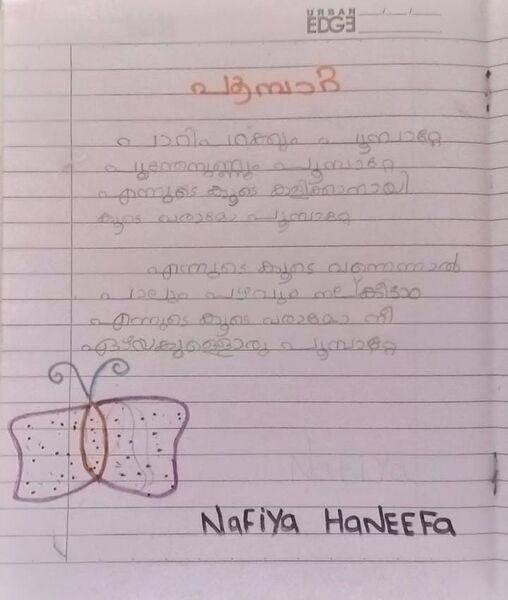 URBAN
EDGE
പൂമ്പാറ്റ
പാറിപറക്കും പൂമ്പാറ്റേ
പൂന്തേനുണ്ണും പൂമ്പാറ്റേ
എന്നുടെ കൂടെ കളിക്കാനായി
കൂടെ വരാമോ പൂമ്പാറ്റേ
എന്നുടെ കൂടെ വന്നെന്നാൽ
പാലും പഴവും നല്കിടാം
എന്നുടെ കൂടെ വരാമോ നീ
ഏഴഴകുള്ളൊരു പൂമ്പാറ്റേ
Nafiya
NaFiYa HaNEEFa